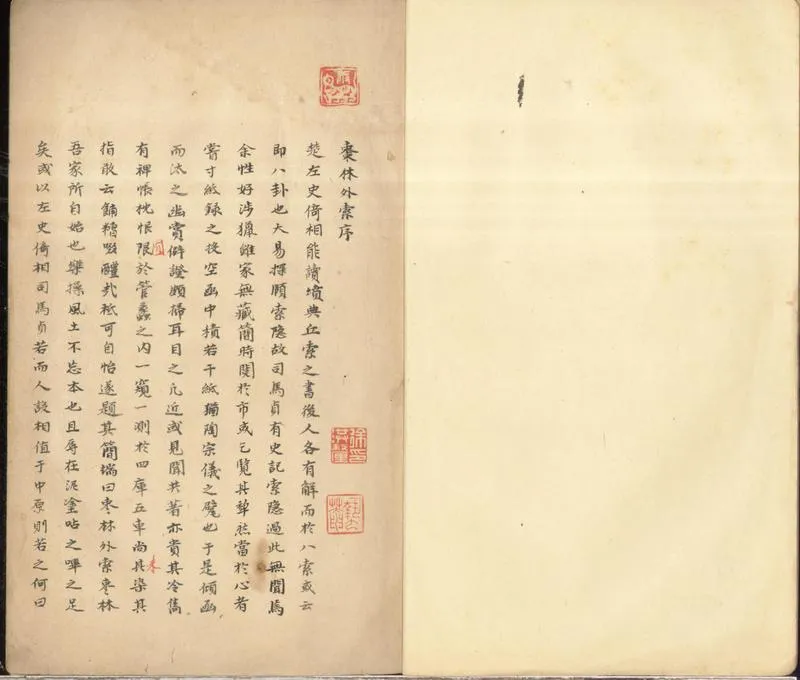 棗林外索序
楚左史倚相能讀墳典丘索之書後人各有解而於八索或云
即八卦也大易探賾索隱故司馬貞有史記索隱過此無聞焉
余性好涉獵雖家無藏簡時閱於市或乙覽其犁然當於心者
嘗寸紙錄之投空函中積若干紙猶陶宗儀之甓也于是傾函
而汰之幽賞僻證頗掃耳目之凡近或見聞共著亦貴其冷雋
有裨帳枕恨限於管蠡之内一窺一測於四庫五車尚具染其
指敢云餔糟啜醨哉祗可自怡遂題其簡端曰棗林外索棗林
吾家所自始也樂操風土不忘本也且辱在泥塗呫之嗶之足
矣或以左史倚相司馬貞若而人設相值于中原則若之何曰
未